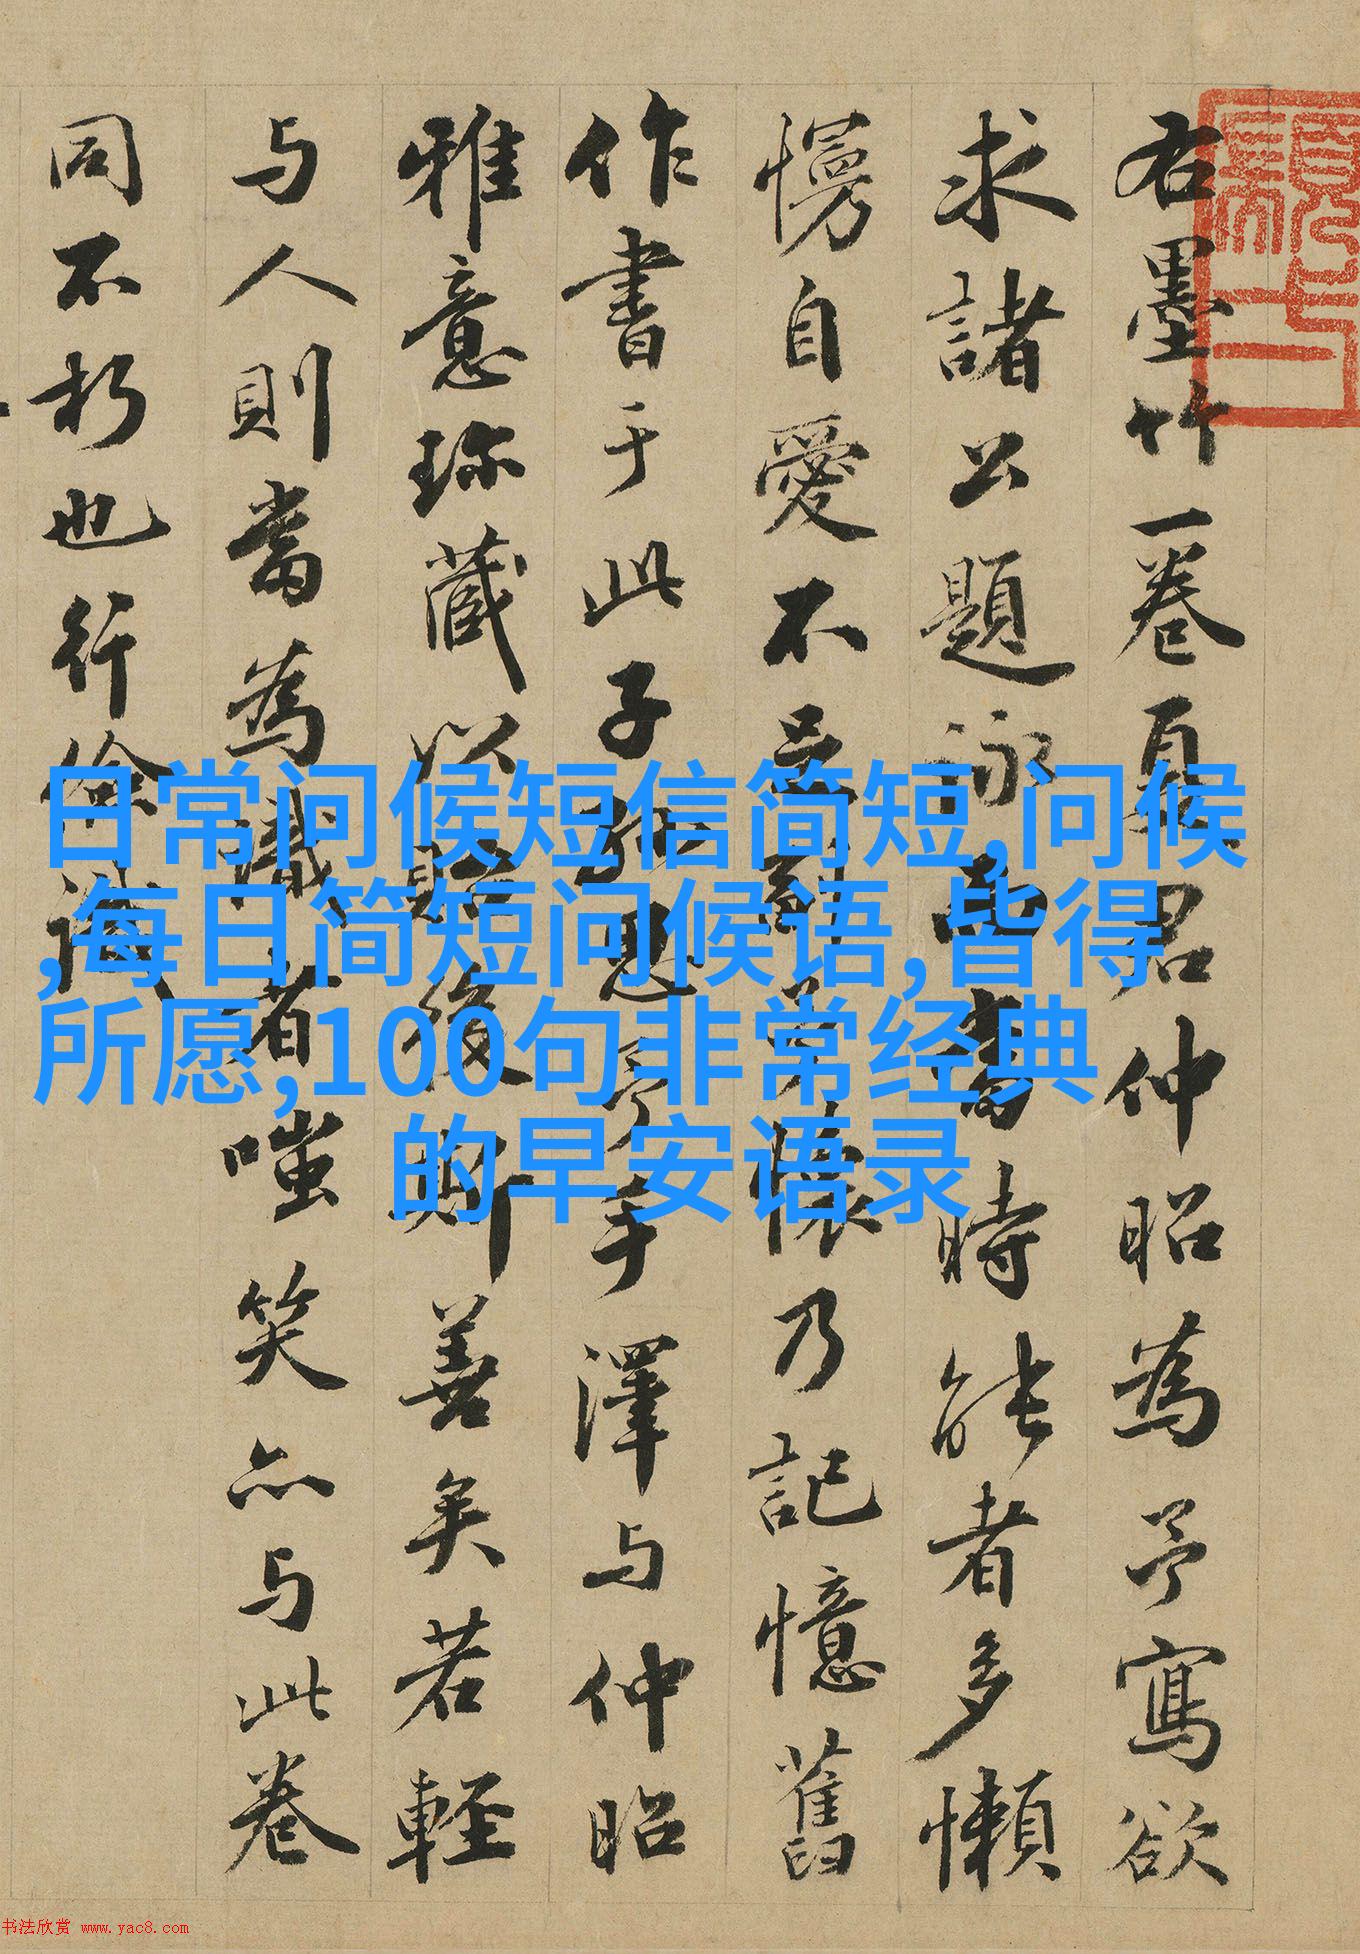 右墨竹一卷夏君仲昭為予寫欲
求諸公題詠而當時能者多懶
慢自愛不懷乃記憶舊
作書于此子孫思予手澤与仲昭
雅意珍藏以貽後斯善矣若輕
与人則當為識者嗤笑亦与此卷
同不朽也行儉識
日常问候短信简短,问候
,每日简短问候语,皆得
所愿,100句非常经典
的早安语录
书法欣赏 www.yac8.com